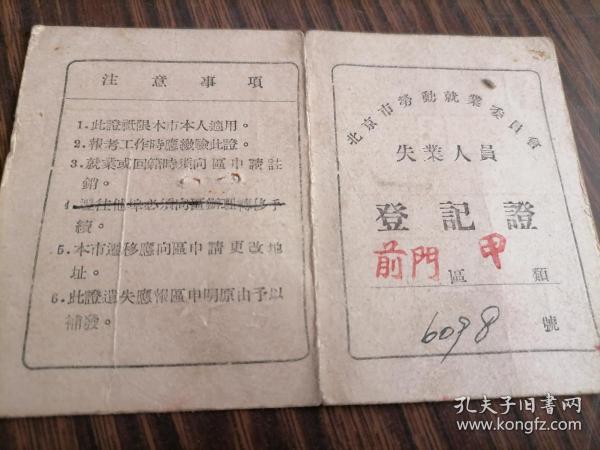 注意事項
1.此證祗限本市本人適用。
2.報考工作時應繳驗此證。
3.就業或回籍時須向區申請註
銷。
4.遷往他埠必須向區辦理轉移手
續。
5.本市遷移應向區申請更改地
址。
6.此證遺失應報區申明原由予以
補發。
北京市勞動就業委員會
失業人員
登記證
前門區 甲類
6098 號
孔夫子旧书网
www.kongfz.com